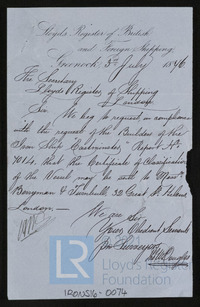 Lloyds Register of British
and Foreign Shipping,
Greenock 3rd July 1876
The Secretary
Lloyds Register of Shipping
London
Sir, We beg to request in compliance
with the request of the Builders of the
Iron Ship "
Report No.
7014, that the Certificate of Classification
of the Vessel may be sent to Messrs
& Turnbull 32 Great St Helens
London
We are Sir
Your Obedient Servants
The Surveyors
LR
Lloyd's Register
Foundation
IRONS16-0074